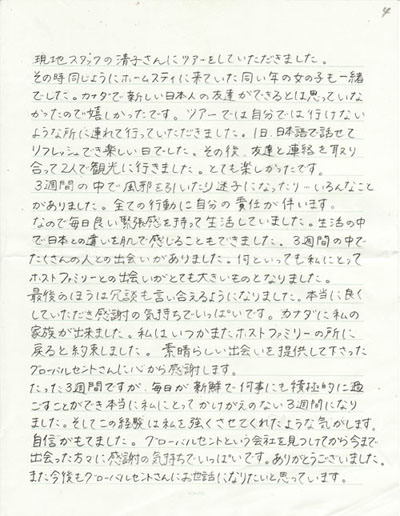 4
現地スタッフの清子さんにツアーをしていただきました。
その時同じようにホームスティに来ていた同い年の女の子も一緒
でした。カナダで新しい日本人の友達ができるとは思っていな
かったので嬉しかったです。ツアーでは自分では行けない
ような所に連れて行っていただきました。1日、日本語で話せて
リフレッシュでき楽しい日でした。その後、友達と連絡を取り
合って2人で観光に行きました。とても楽しかったです。
3週間の中で風邪を引いたり迷子になったり…いろんなこと
がありました。全ての行動に自分の責任が伴います。
なので毎日良い緊張感を持って生活していました。生活の中
で日本との違いを肌で感じることもできました。3週間の中で
たくさんの人との出会いがありました。何といっても私にとって
ホストファミリーとの出会いがとても大きいものとなりました。
最後のほうは冗談も言い合えるようになりました。本当に良く
していただき感謝の気持ちでいっぱいです。カナダに私の
家族が出来ました。私はいつかまたホストファミリーの所に
戻ると約束しました。素晴らしい出会いを提供して下さった
グローバルセントさんに心から感謝します。
たった3週間ですが、毎日が新鮮で何事にも積極的に過
ごすことができ本当に私にとってかけがえのない3週間になり
ました。そしてこの経験は私を強くさせてくれたような気がします。
自信がもてました。グローバルセントという会社を見つけてから今まで
出会った方々に感謝の気持ちでいっぱいです。ありがとうございました。
また今後もグローバルセントさんにお世話になりたいと思っています。